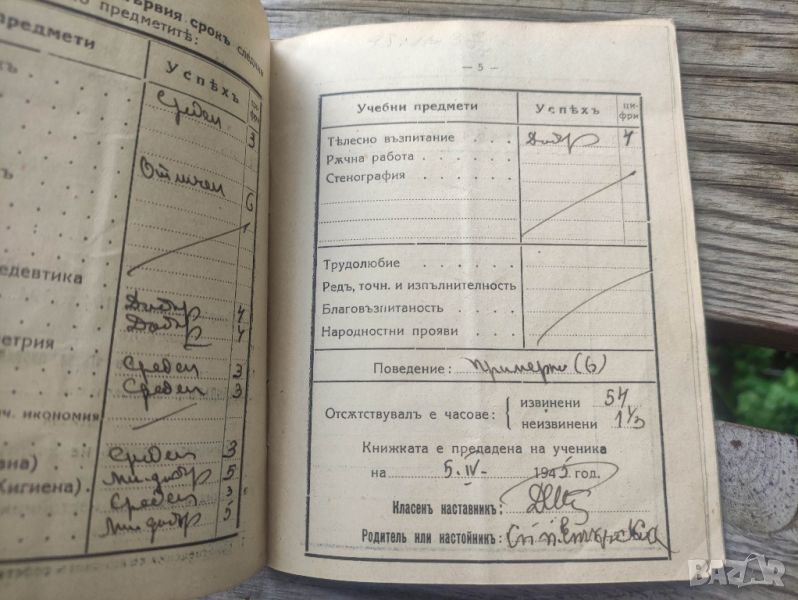 ървия срокъ следния
о предметитѣ:
предмети
Успѣхъ
ци-
фри
Среден 3
Отличен 6
едевтика
Добър 4
Добър 4
етрия
Среден 3
Среден 3
ич. икономия
Среден 3
ана)
Мн. добър 5
Хигиена)
Среден 3
Мн. добър 5
— 5 —
Учебни предмети
Успѣхъ
ци-
фри
Тѣлесно възпитание Добър 4
Рѫчна работа
Стенография
Трудолюбие
Редъ, точн. и изпълнителность
Благовъзпитаность
Народностни прояви
Поведение: Примерно (6)
Отсѫтствувалъ е часове:
извинени 54
неизвинени 1 1/3
Книжката е предадена на ученика
на 5. IV 1945 год.
Класенъ наставникъ:
Родитель или настойникъ:
BAZAR